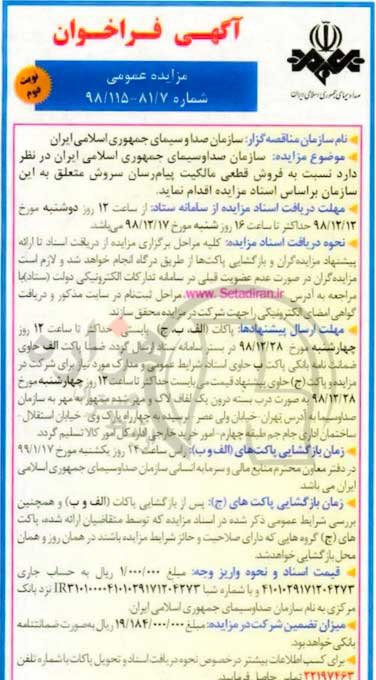 آگهی فراخوان
صدا و سیمای جمهوری اسلامی ایران
نوبت دوم
مزایده عمومی
شماره ۹۸/۱۱۵-۸۱/۷
نام سازمان مناقصه‌گزار: سازمان صدا و سیمای جمهوری اسلامی ایران
موضوع مزایده: سازمان صداوسیمای جمهوری اسلامی ایران در نظر
دارد نسبت به فروش قطعی مالکیت پیام‌رسان سروش متعلق به این
سازمان براساس اسناد مزایده اقدام نماید.
مهلت دریافت اسناد مزایده از سامانه ستاد: از ساعت ۱۲ روز دوشنبه مورخ
۹۸/۱۲/۱۲ حداکثر تا ساعت ۱۶ روز شنبه مورخ ۹۸/۱۲/۱۷ می‌باشد.
نحوه دریافت اسناد مزایده: کلیه مراحل برگزاری مزایده از دریافت اسناد تا ارائه
پیشنهاد مزایده‌گران و بازگشایی پاکت‌ها از طریق درگاه انجام خواهد شد و لازم است
مزایده‌گران در صورت عدم عضویت قبلی در سامانه تدارکات الکترونیکی دولت (ستاد) با
مراجعه به آدرس www.Setadiran.ir مراحل ثبت‌نام در سایت مذکور و دریافت
گواهی امضای الکترونیکی را جهت شرکت در مزایده محقق سازند.
مهلت ارسال پیشنهادها: پاکات (الف، ب، ج) بایستی حداکثر تا ساعت ۱۲ روز
چهارشنبه مورخ ۹۸/۱۲/۲۸ در بستر سامانه ستاد ارسال گردد. ضمنا پاکت الف حاوی
ضمانت نامه بانکی پاکت ب حاوی اسناد شرایط عمومی و مدارک مورد نیاز برای شرکت در
مزایده و پاکت (ج) حاوی پیشنهاد قیمت می‌بایست حداکثر تا ساعت ۱۲ روز چهارشنبه مورخ
۹۸/۱۲/۲۸ به صورت درب بسته درون یک لفاف لاک و مهر شده ممهور به مهر به سازمان
صداوسیما به آدرس تهران خیابان ولی عصر نرسیده به چهارراه پارک وی- خیابان استقلال-
ساختمان اداری جام جم طبقه چهارم- امور خرید خارجی اداره کل امور کالا تسلیم گردد.
زمان بازگشایی پاکت‌های (الف و ب): راس ساعت ۱۴ روز یکشنبه مورخ ۹۹/۱/۱۷
در دفتر معاون محترم منابع مالی و سرمایه انسانی سازمان صداوسیمای جمهوری اسلامی
ایران می باشد
زمان بازگشایی پاکت های (ج): پس از بازگشایی پاکات (الف و ب) و همچنین
بررسی شرایط عمومی ذکر شده در اسناد مزایده که توسط متقاضیان ارائه شده، پاکت
های (ج) گروه هایی که دارای صلاحیت و حائز شرایط مزایده باشند در همان روز و همان
محل بازگشایی خواهد شد.
قیمت اسناد و نحوه واریز وجه: مبلغ ۱/۰۰۰/۰۰۰ ریال به حساب جاری
۴۱۰۱۰۲۹۱۷۱۲۰۴۲۷۳ و با شماره شبا IR۳۱۰۱۰۰۰۰۴۱۰۱۰۲۹۱۷۱۲۰۴۲۷۳ نزد بانک
مرکزی به نام سازمان صداوسیمای جمهوری اسلامی ایران.
میزان تضمین شرکت در مزایده: مبلغ ۱۹/۱۸۴/۰۰۰/۰۰۰ ریال به صورت ضمانتنامه
بانکی خواهد بود.
برای کسب اطلاعات بیشتر در خصوص نحوه دریافت اسناد و تحویل پاکات با شماره تلفن
۲۲۱۹۷۴۶۳ تماس حاصل فرمایید.